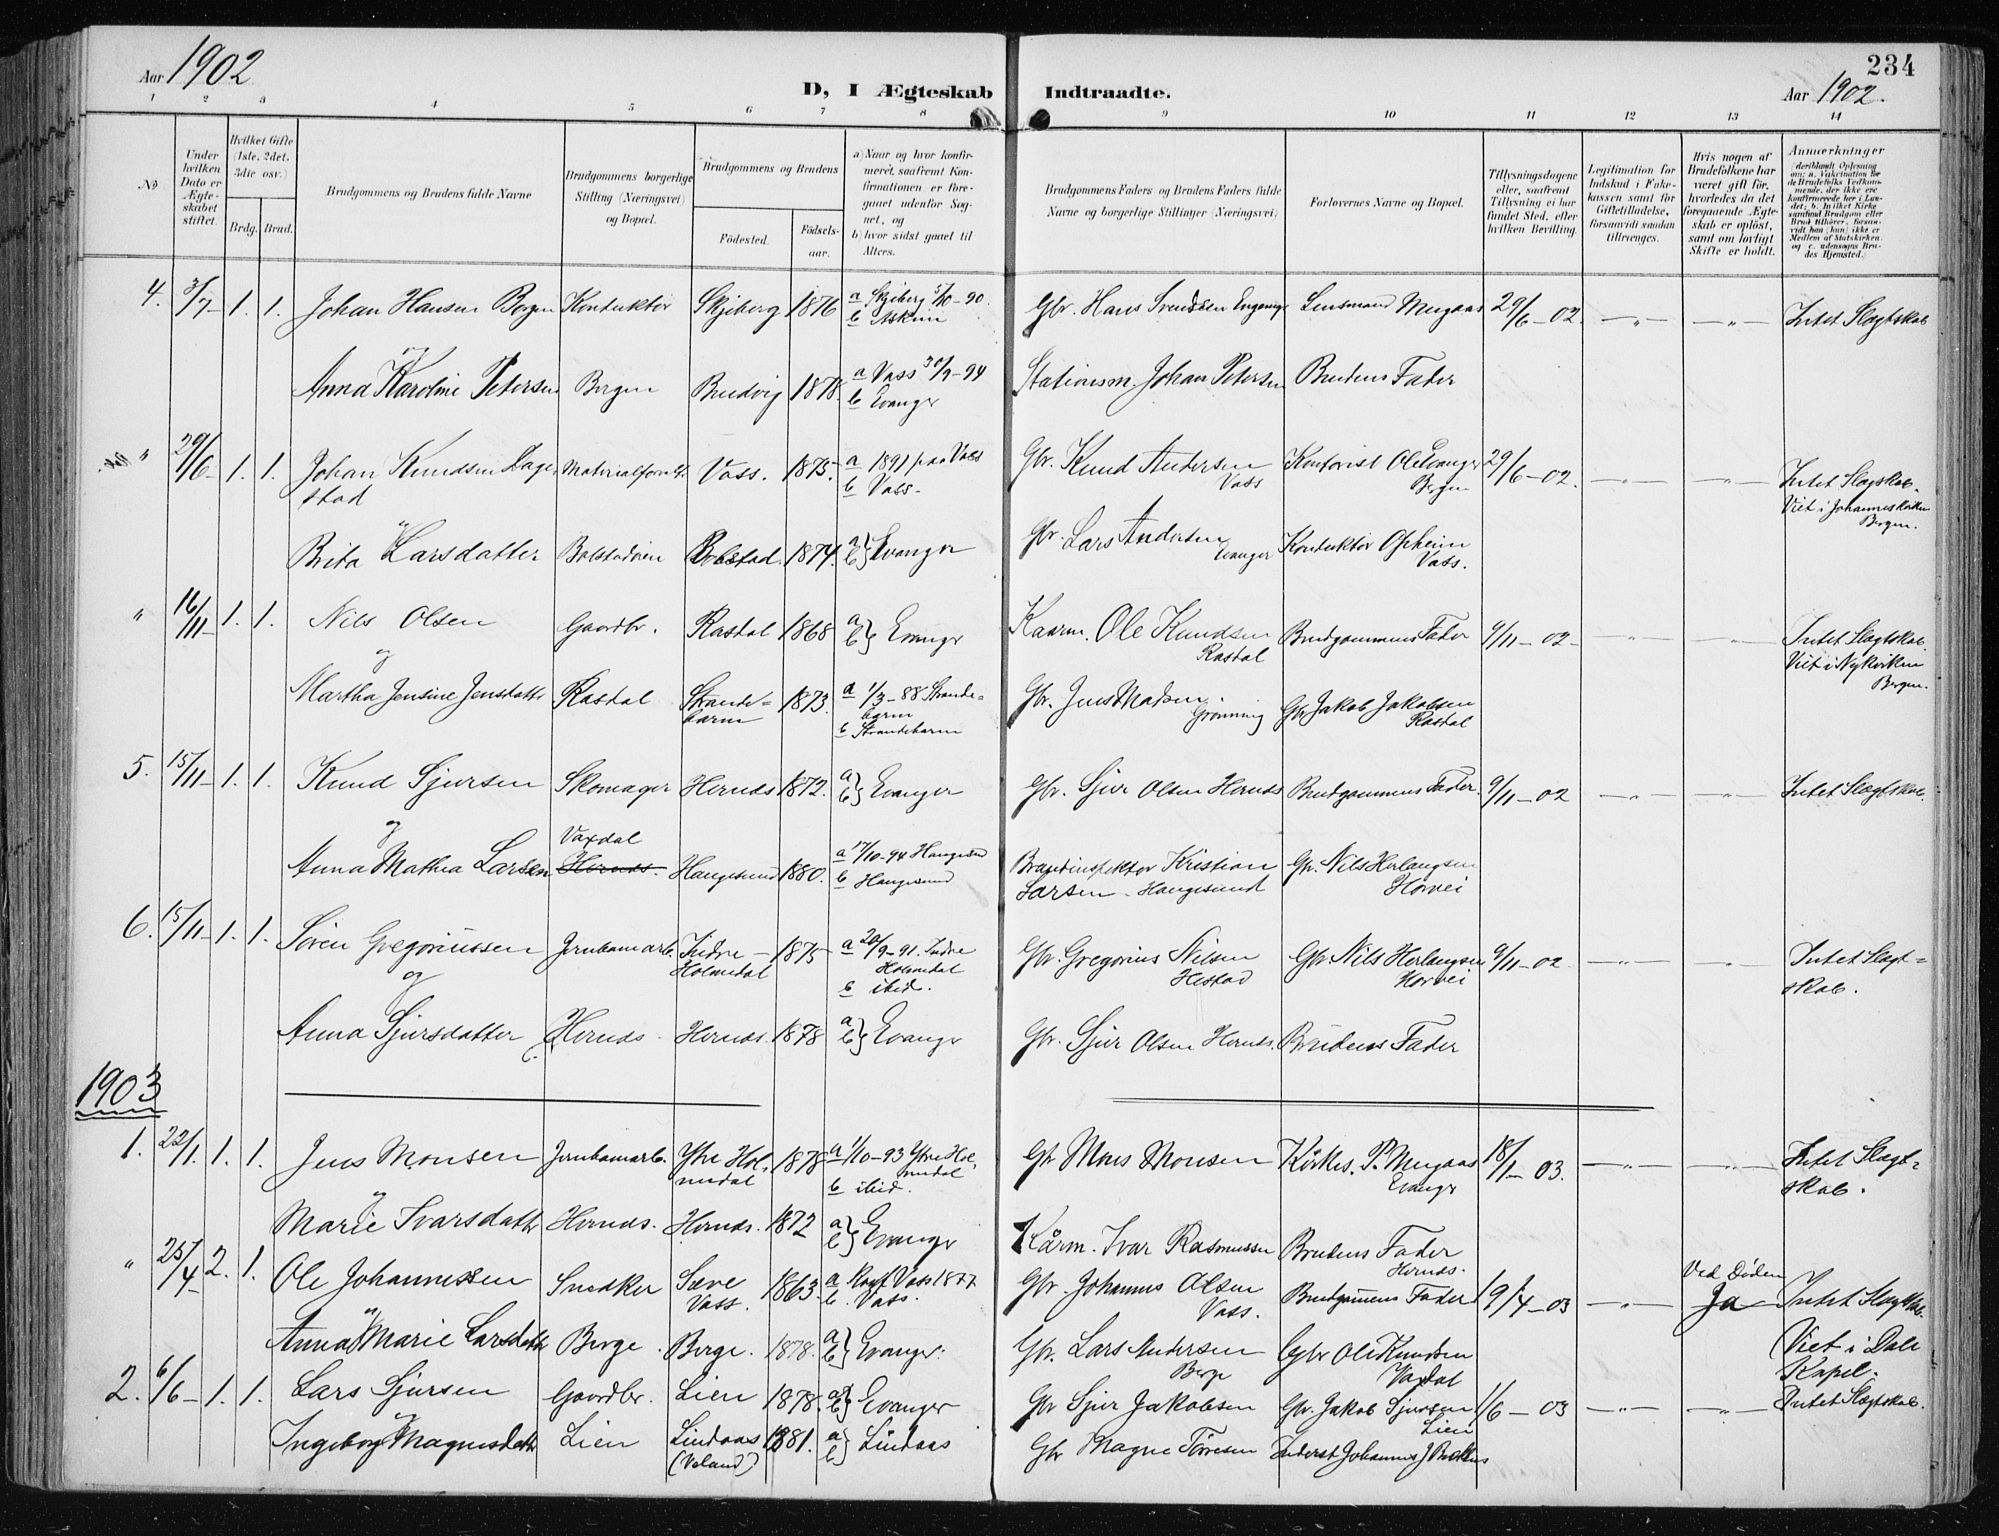 Aar 1902
D, I Ægteskab Indtraadte.
234
Aar 1902.
1 2 3 4 5 6 7 8 9 10 11 12 13 14
No
Under hvilken Dato er Ægteskabet stiftet.
Hvilket Gifte (1ste, 2det, 3die osv.)
Brdg. Brud.
Brudgommens og Brudens fulde Navne
Brudgommens borgerlige Stilling (Næringsvei) og Bopæl.
Brudgommens og Brudens
Fødested. Fødselsaar.
a) Naar og hvor konfirmeret, saafremt Konfirmationen er foregaaet udenfor Sognet, og
b) hvor sidst gaaet til Alters.
Brudgommens Faders og Brudens Faders fulde Navne og borgerlige Stillinger (Næringsvei)
Forlovernes Navne og Bopæl.
Tillysningsdagene eller, saafremt Tillysning ei har fundet Sted, efter hvilken Bevilling.
Legitimation for Indskud i Enkekassen samt for Giftetilladelse, forsaavidt saadan tiltrænges.
Hvis nogen af Brudefolkene har været gift før, hvorledes da det foregaaende Ægteskab er opløst, samt om lovligt Skifte er holdt.
Anmærkninger (deriblandt Oplysning om: a. Vakcination for de Brudefolks Vedkommende, der ikke ere konfirmerede her i Landet; b. hvilket Kirkesamfund Brudgom eller Brud tilhører, forsaavidt han (hun) ikke er Medlem af Statskirken, og c. udensogns Brudes Hjemsted.)
4. 3/7 1. 1. Johan Hansen Borgen Konduktør Skjeberg 1876 a Skjeberg 5/10-90. b Askim Gbr. Hans Svendsen Lensmand Mugaas 29/6-02. —"— —"— Intet Slagtskab
og
Anna Karoline Petersen Bergen Bruvig 1878. a Voss 30/9-94 b Evanger Stationsm. Johan Petersen Brudens Fader
" 29/6 1. 1. Johan Knudsen Dagestad Materialforvalt. Voss. 1875. a 1891 paa Voss b Voss. Gbr. Knud Andersen Voss Kontorist Ole Evanger Bergen 29/6-02. —"— —"— Intet Slagtskab. Viet i Johanneskirken Bergen.
og
Brita Larsdatter Bolstadøren Bolstad. 1874. a b} Evanger Gbr. Lars Andersen Evanger Konduktør Opheim Voss.
" 16/11 1. 1. Nils Olsen Gaardbr. Rasdal 1868 a b} Evanger Kaarm. Ole Knudsen Rasdal Brudgommens Fader 9/11-02. —"— —"— Intet Slagtskab. Viet i Nykirken Bergen.
og
Martha Jensine Jensdatter Rasdal Strandebarm 1873. a 1/3-88 Strandebarm b Strandebarm Gbr. Jens Madsen Grønning Gbr Jakob Jakobsen Rasdal
5. 15/11 1. 1. Knud Sjursen Skomager Hernds 1872. a b} Evanger Gbr. Sjur Olsen Hernds Brudgommens Fader. 9/11-02 —"— —"— Intet Slagtskab.
og
Anna Mathea Larsen Vaxdal Hernds. Haugesund 1880. a 17/10-94 Haugesund b Haugesund Brandinspektør Kristian Larsen - Haugesund Gbr. Nils Herlaugsen Horvei
6. 15/11 1. 1. Søren Gregoriussen Jernbanearb. Indre Holmedal 1875 a 20/9-91. Indre Holmedal b ibid. Gbr. Gregorius Nilsen Hestad Gbr Nils Herlaugsen Horvei 9/11-02 —"— —"— Intet Slagtskab.
og
Anna Sjursdatter Hernds. Hernds. 1878 a b} Evanger Gbr. Sjur Olsen Hernds. Brudens Fader
1903
1. 22/1. 1. 1. Jens Monsen Jernbanearb. Ytre Holmedal 1878 a 1/10-93 Ytre Holmedal b ibid. Gbr Mons Monsen Kirkes. P. Mugaas Evanger 18/1-03. —"— —"— Intet Slagtskab.
og
Marie Ivarsdatter Hernds. Hernds. 1872 a b} Evanger Kårm. Ivar Rasmussen Brudens Fader Hernds.
" 25/4 2. 1. Ole Johannessen Snedker Sæve Voss. 1863. a Voss 1877 b. Voss. Gbr. Johannes Olsen Voss. Brudgommens Fader 19/4-03 —"— Ved Døden Ja Intet Slagtskab.
og
Anna Marie Larsdatter Berge. Berge. 1878. a b} Evanger. Gbr. Lars Andersen Berge Gbr Ole Knudsen Vaxdal Viet i Dale Kapel.
2. 6/6 1. 1. Lars Sjursen Gaardbr. Lien 1878. a b} Evanger Gbr Sjur Jakobsen Gbr. Jakob Sjursen Lien 1/6-03 —"— —"— Intet Slagtskab.
og
Ingeborg Magnesdatter Lien Lindaas (Veland) 1881. a b} Lindaas Gbr Magne Tørresen Inderst Johannes J